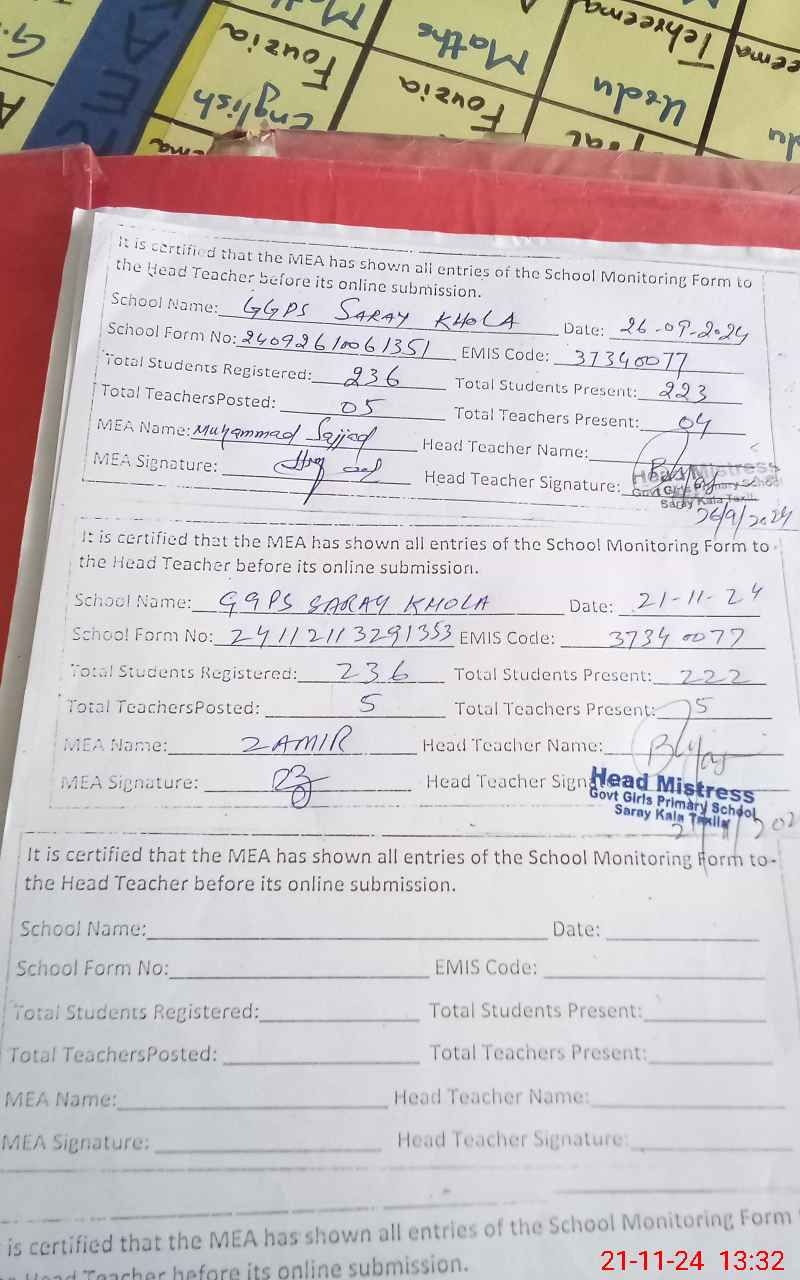 Fouzia
Maths
Tehreema
English
Fouzia
Urdu
It is certified that the MEA has shown all entries of the School Monitoring Form to
the Head Teacher before its online submission.
School Name: GGPS SARAY KHOLA Date: 26-09-2024
School Form No: 24092610061351 EMIS Code: 37340077
Total Students Registered: 236 Total Students Present: 223
Total TeachersPosted: 05 Total Teachers Present: 04
MEA Name: Muhammad Sajjad Head Teacher Name:
MEA Signature: Head Teacher Signature:
Head Mistress
Govt Girls Primary School
Saray Kala Taxila
26/9/2024
It is certified that the MEA has shown all entries of the School Monitoring Form to
the Head Teacher before its online submission.
School Name: GGPS SARAY KHOLA Date: 21-11-24
School Form No: 24112113291353 EMIS Code: 37340077
Total Students Registered: 236 Total Students Present: 222
Total TeachersPosted: 5 Total Teachers Present: 5
MEA Name: ZAMIR Head Teacher Name:
MEA Signature: Head Teacher Sign
Head Mistress
Govt Girls Primary School
Saray Kala Taxila
It is certified that the MEA has shown all entries of the School Monitoring Form to
the Head Teacher before its online submission.
School Name: Date:
School Form No: EMIS Code:
Total Students Registered: Total Students Present:
Total TeachersPosted: Total Teachers Present:
MEA Name: Head Teacher Name:
MEA Signature: Head Teacher Signature:
is certified that the MEA has shown all entries of the School Monitoring Form
Head Teacher before its online submission.
21-11-24 13:32